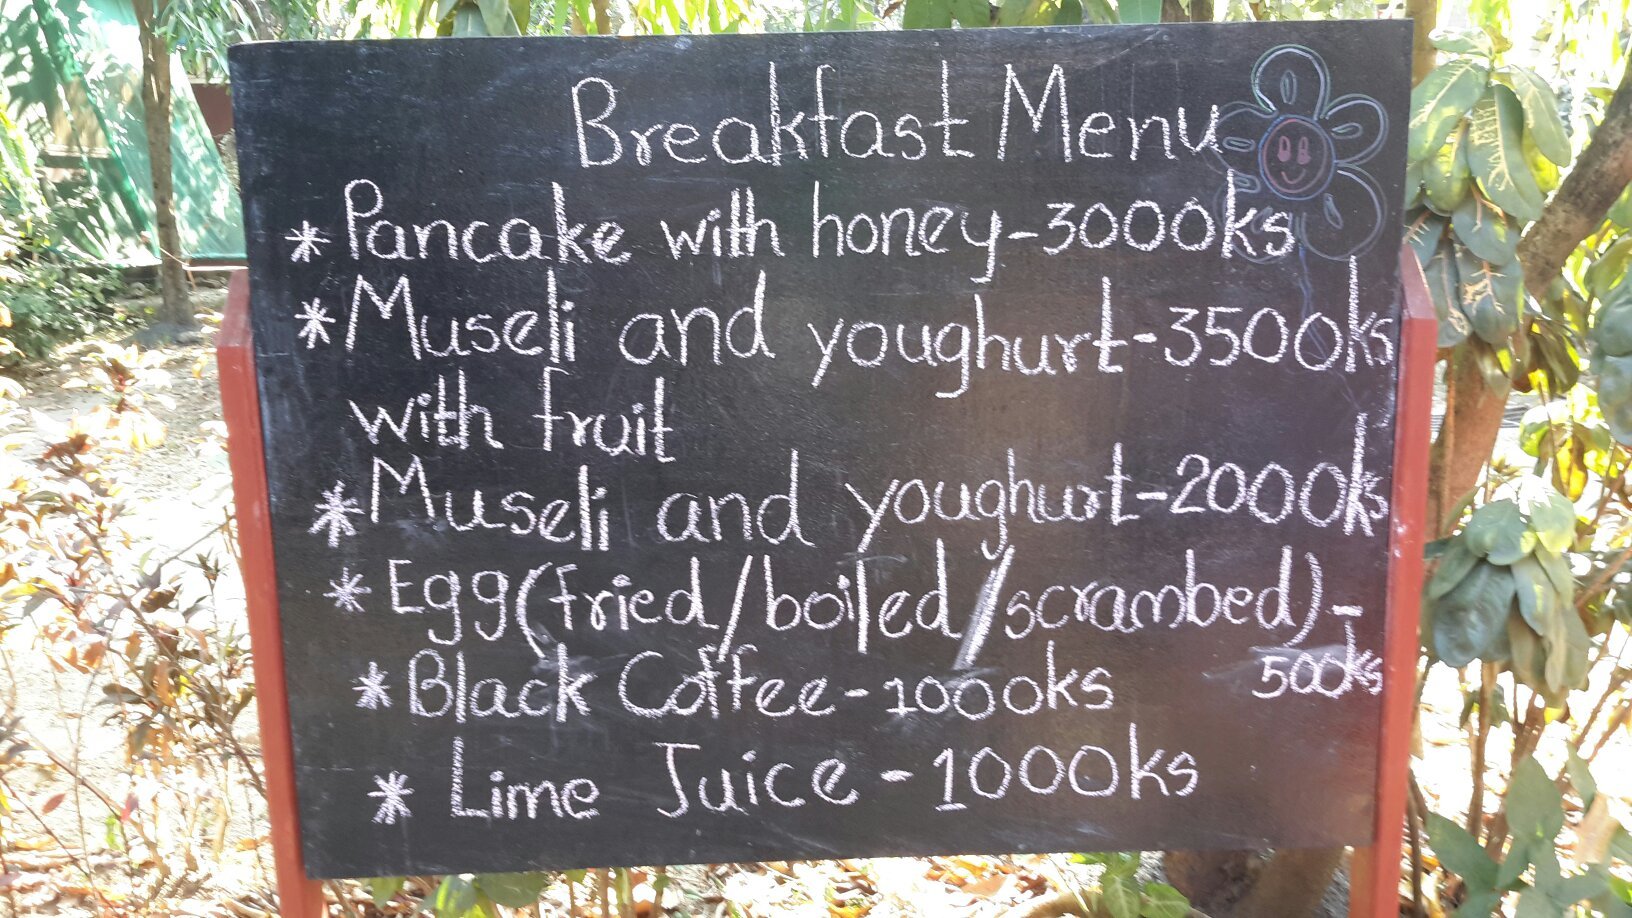 Breakfast Menu
* Pancake with honey - 3000ks
* Museli and youghurt - 3500ks
with fruit
* Museli and youghurt - 2000ks
* Egg (fried/boiled/scrambed) -
500ks
* Black Coffee - 1000ks
* Lime Juice - 1000ks